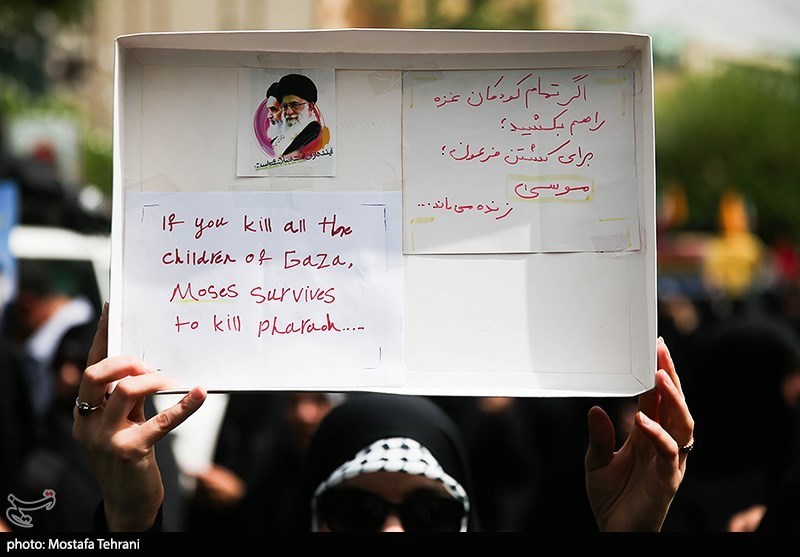 اگر تمام کودکان غزه
را هم بکشید؛
برای کشتن فرعون؛
موسی
زنده می ماند...
If you kill all the
children of Gaza,
Moses survives
to kill pharaoh....-
تسنیم
photo: Mostafa Tehrani